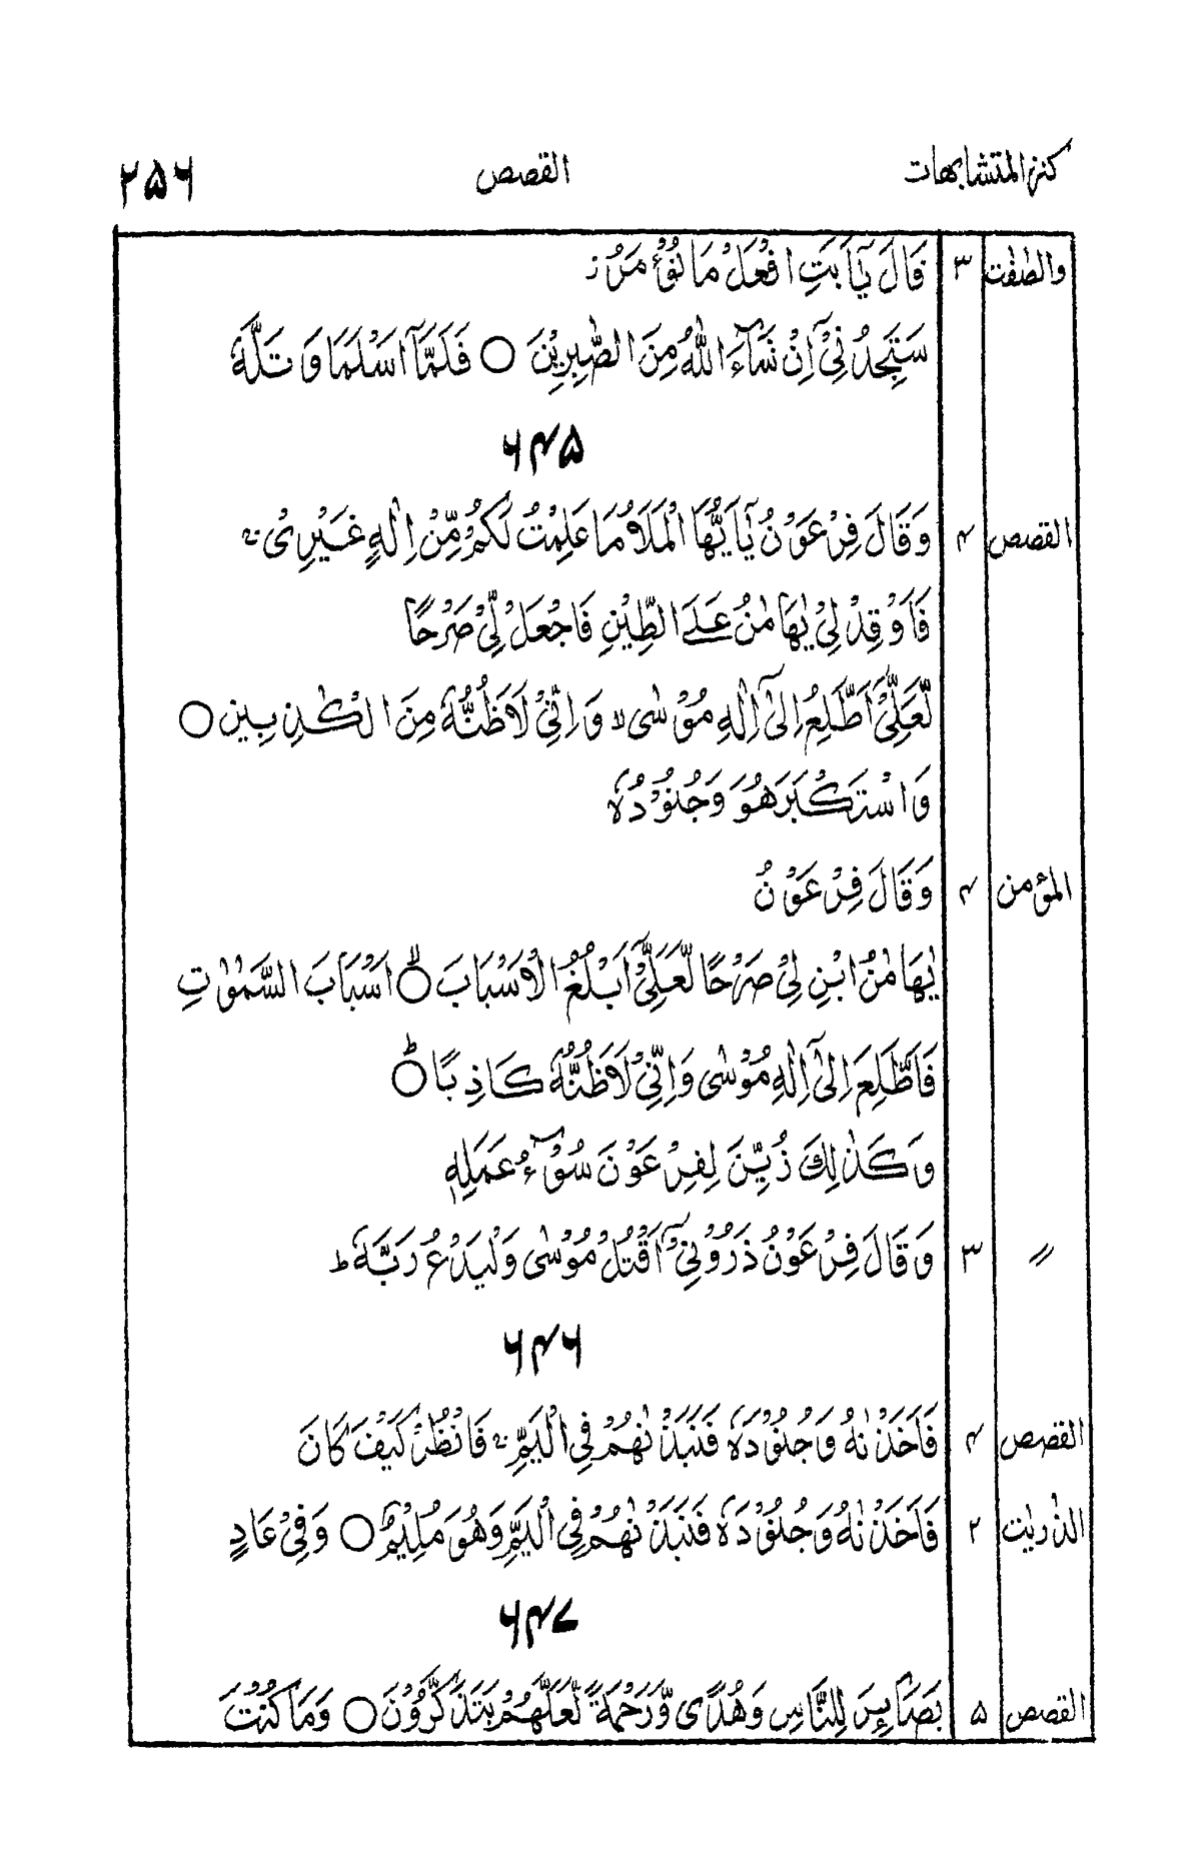 كنز المتشابهات القصص ۲۵۶
والصّٰفّٰت ۳ قَالَ يٰٓاَبَتِ افْعَلْ مَا تُؤْمَرُ ز
سَتَجِدُنِيْٓ اِنْ شَآءَ اللّٰهُ مِنَ الصّٰبِرِيْنَ ○ فَلَمَّآ اَسْلَمَا وَ تَلَّهٗ
۶۴۵
القصص ۴ وَقَالَ فِرْعَوْنُ يٰٓاَيُّهَا الْمَلَاُ مَا عَلِمْتُ لَكُمْ مِّنْ اِلٰهٍ غَيْرِىْ ۚ
فَاَوْقِدْ لِيْ يٰهَامٰنُ عَلَى الطِّيْنِ فَاجْعَلْ لِّيْ صَرْحًا
لَّعَلِّيْٓ اَطَّلِعُ اِلٰٓى اِلٰهِ مُوْسٰى ۙ وَ اِنِّيْ لَاَظُنُّهٗ مِنَ الْكٰذِبِيْن ○
وَاسْتَكْبَرَ هُوَ وَجُنُوْدُهٗ
المؤمن ۴ وَقَالَ فِرْعَوْنُ
يٰهَامٰنُ ابْنِ لِيْ صَرْحًا لَّعَلِّيْٓ اَبْلُغُ الْاَسْبَابَ ○ۙ اَسْبَابَ السَّمٰوٰتِ
فَاَطَّلِعَ اِلٰٓى اِلٰهِ مُوْسٰى وَاِنِّيْ لَاَظُنُّهٗ كَاذِبًا ○ؕ
وَكَذٰلِكَ زُيِّنَ لِفِرْعَوْنَ سُوْٓءُ عَمَلِهٖ
〃 ۳ وَقَالَ فِرْعَوْنُ ذَرُوْنِيْٓ اَقْتُلْ مُوْسٰى وَلْيَدْعُ رَبَّهٗ ؕ
۶۴۶
القصص ۴ فَاَخَذْنٰهُ وَجُنُوْدَهٗ فَنَبَذْنٰهُمْ فِي الْيَمِّ ۚ فَانْظُرْ كَيْفَ كَانَ
الذّٰريٰت ۲ فَاَخَذْنٰهُ وَجُنُوْدَهٗ فَنَبَذْنٰهُمْ فِي الْيَمِّ وَهُوَ مُلِيْمٌ ○ وَفِيْ عَادٍ
۶۴۷
القصص ۵ بَصَآئِرَ لِلنَّاسِ وَهُدًى وَّرَحْمَةً لَّعَلَّهُمْ يَتَذَكَّرُوْنَ ○ وَمَا كُنْتَ